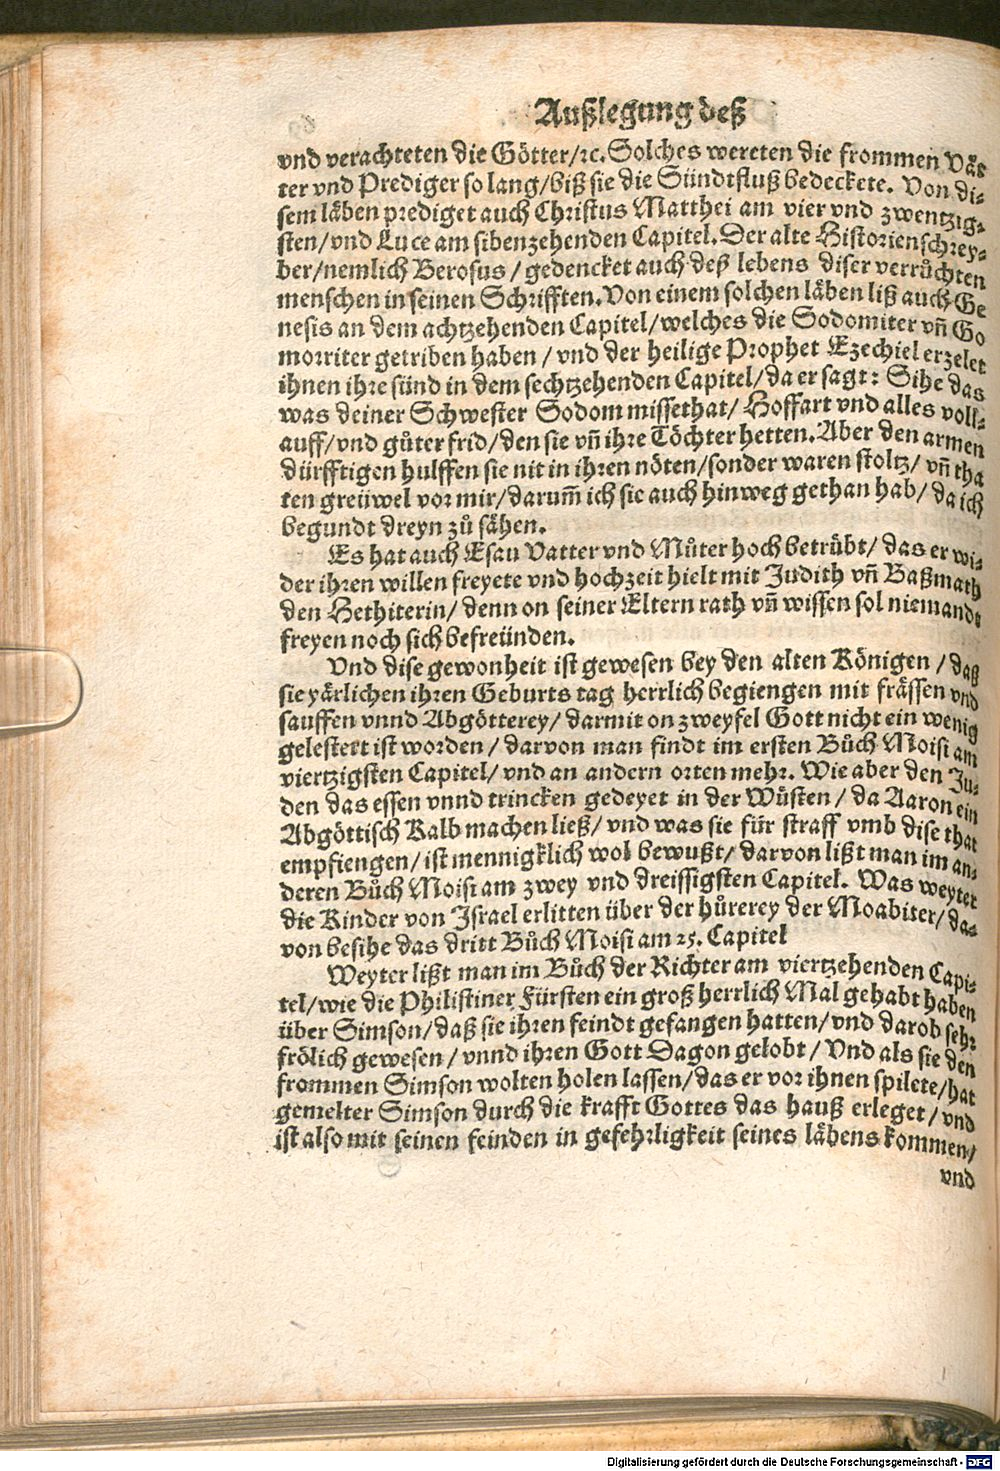 Außlegung deß
vnd verachteten die Götter/ꝛc. Solches wereten die frommen Vät
ter vnd Prediger so lang/biß sie die Sündtfluß bedeckete. Von di-
sem läben prediget auch Christus Matthei am vier vnd zwentzig-
sten/vnd Luce am sibenzehenden Capitel. Der alte Historienschrey-
ber/nemlich Berosus/gedencket auch deß lebens diser verrůchten
menschen in seinen Schrifften. Von einem solchen läben lißt auch Ge
nesis an dem achtzehenden Capitel/welches die Sodomiter vn̄ Go
morriter getriben haben/vnd der heilige Prophet Ezechiel erzelet
ihnen ihre sünd in dem sechtzehenden Capitel/da er sagt: Sihe das
was deiner Schwester Sodom missethat/Hoffart vnd alles voll-
auff/vnd gůter frid/den sie vn̄ ihre Töchter hetten. Aber den armen
dürfftigen hulffen sie nit in ihren nöten/sonder waren stoltz/vn̄ tha
ten greüwel vor mir/darum̄ ich sie auch hinweg gethan hab/da ich
begundt dreyn zů sähen.
Es hat auch Esau Vatter vnd Můter hoch betrübt/das er wi-
der ihren willen freyete vnd hochzeit hielt mit Judith vn̄ Baßmath
den Hethiterin/denn on seiner Eltern rath vn̄ wissen sol niemandt
freyen noch sich befreünden.
Vnd dise gewonheit ist gewesen bey den alten Königen/daß
sie yärlichen ihren Geburts tag herrlich begiengen mit frässen vnd
sauffen vnnd Abgötterey/darmit on zweyfel Gott nicht ein wenig
gelestert ist worden/darvon man findt im ersten Bůch Moisi am
viertzigsten Capitel/vnd an andern orten mehr. Wie aber den Ju-
den das essen vnnd trincken gedeyet in der Wüsten/da Aaron ein
Abgöttisch Kalb machen ließ/vnd was sie für straff vmb dise that
empfiengen/ist mennigklich wol bewußt/darvon lißt man im an-
deren Bůch Moisi am zwey vnd dreissigsten Capitel. Was weyter
die Kinder von Israel erlitten über der hůrerey der Moabiter/da-
von besihe das dritt Bůch Moisi am 25. Capitel
Weyter lißt man im Bůch der Richter am viertzehenden Capi-
tel/wie die Philistiner Fürsten ein groß herrlich Mal gehabt haben
über Simson/daß sie ihren feindt gefangen hatten/vnd darob sehr
frölich gewesen/vnnd ihren Gott Dagon gelobt/Vnd als sie den
frommen Simson wolten holen lassen/das er vor ihnen spilete/hat
gemelter Simson durch die krafft Gottes das hauß erleget/vnd
ist also mit seinen feinden in gefehrligkeit seines läbens kommen/
vnd
Digitalisierung gefördert durch die Deutsche Forschungsgemeinschaft - DFG